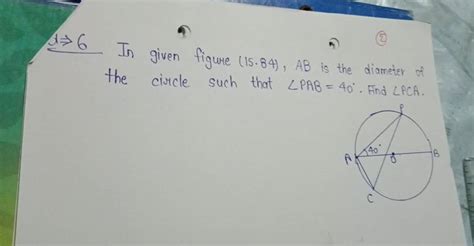 ②
Q⇒6 In given figure (15.84), AB is the diameter of
the circle such that ∠PAB = 40°. Find ∠PCA.
P
A 40° O B
C